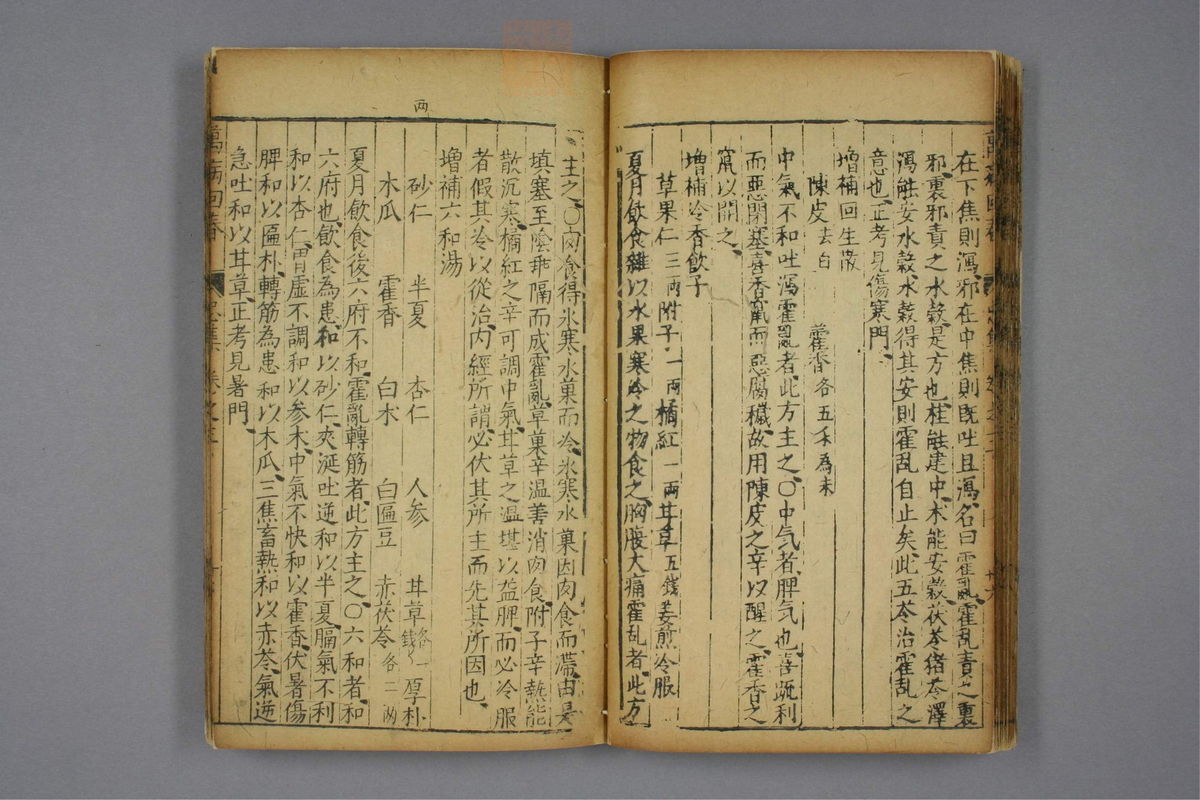 在下焦則瀉邪在中焦則既吐且瀉名曰霍亂霍乱責之裏
邪裏邪責之水穀是方也桂能建中木能安穀茯苓猪苓澤
瀉能安水穀水穀得其安則霍乱自止矣此五苓治霍乱之
意也正考見傷寒門
增補回生散
陳皮去白 藿香各五禾為末
中氣不和吐瀉霍亂者此方主之〇中气者脾气也喜疏利
而惡閉塞喜香薰而惡腐穢故用陳皮之辛以醒之霍香之
薰以開之
增補冷香飲子
草果仁三兩附子一兩橘紅一兩甘草五錢姜煎冷服
夏月飲食雜以水果寒冷之物食之胸腹大痛霍乱者此方
主之〇肉食得氷寒水菓而冷氷寒水菓因肉食而滯由是
填塞至陰乖隔而成霍亂草菓辛温善消肉食附子辛熱能
散沉寒橘紅之辛可調中氣甘草之温堪以益脾而必冷服
者假其冷以從治内經所謂必伏其所主而先其所因也
增補六和湯
兩
砂仁 半夏 杏仁 人参 甘草各一錢 厚朴
木瓜 霍香 白木 白匾豆 赤茯苓各二兩
夏月飲食後六府不和霍亂轉筋者此方主之〇六和者和
六府也飲食為患和以砂仁夾涎吐逆和以半夏膈氣不利
和以杏仁胃虛不調和以参木中氣不快和以霍香伏暑傷
脾和以匾朴轉筋為患和以木瓜三焦畜熱和以赤苓氣逆
急吐和以甘草正考見暑門
萬病回春